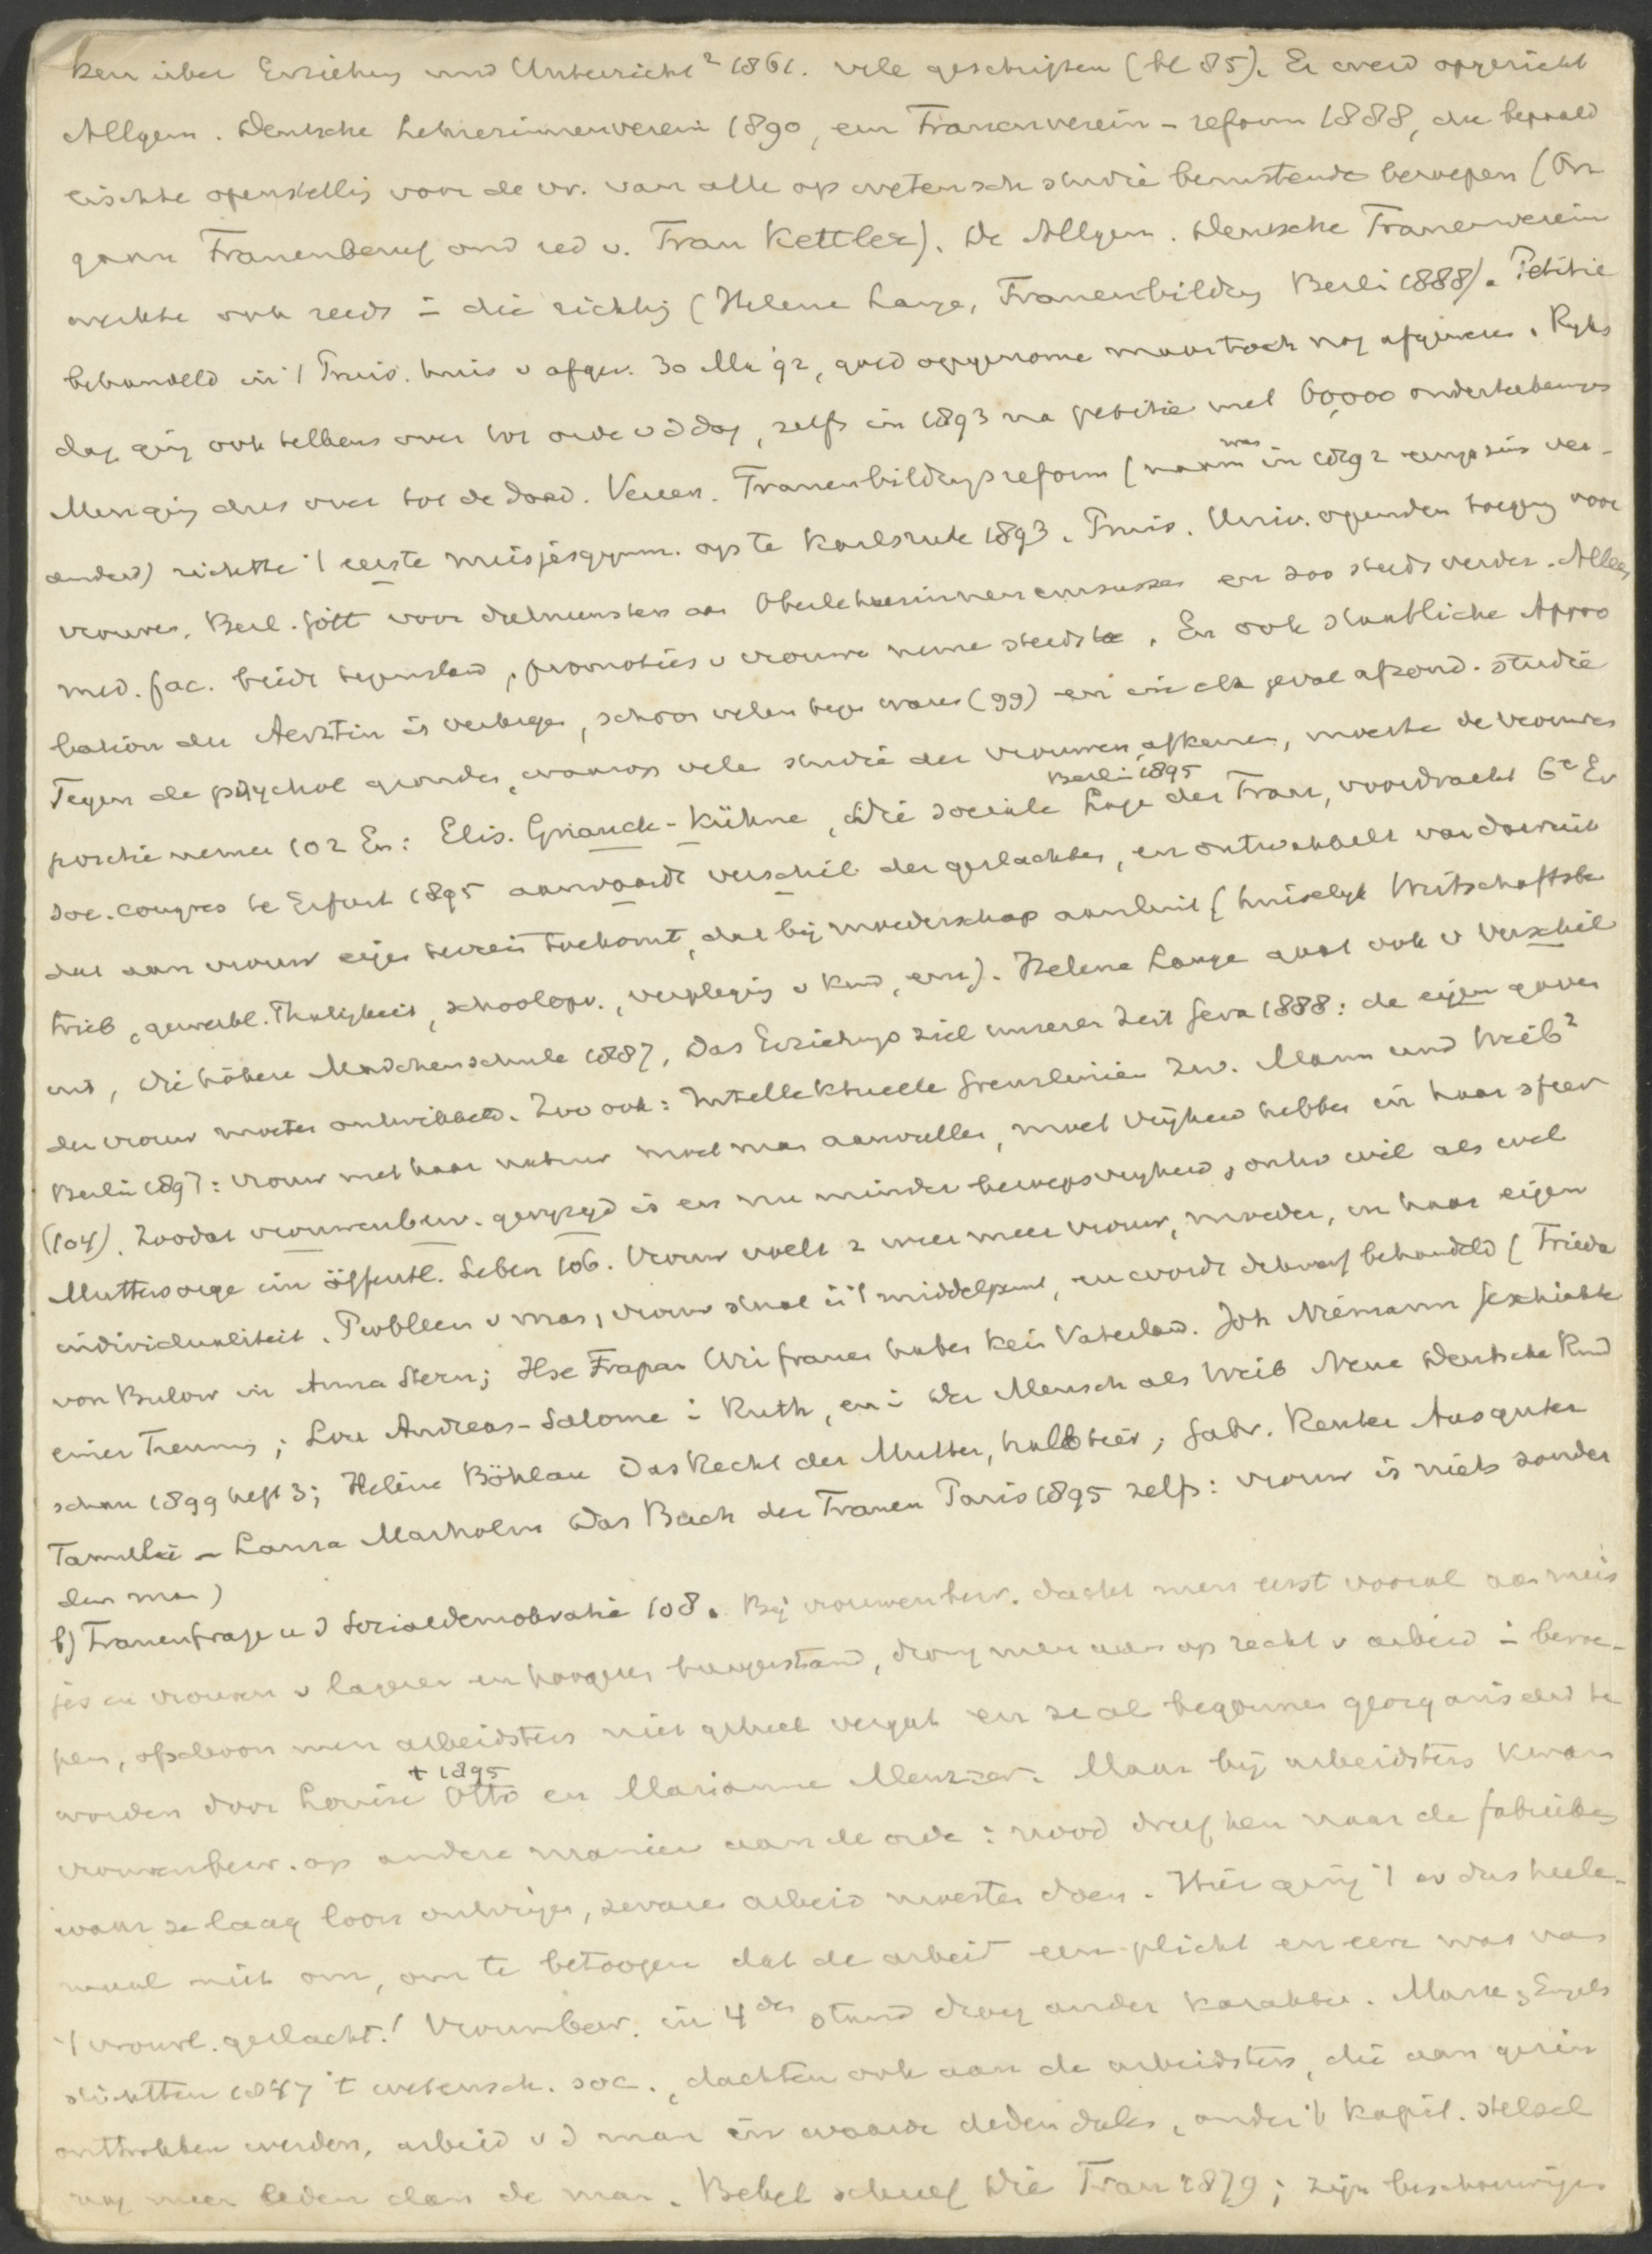 ken über Erziehung und Unterricht² 1861. vele geschriften (bl 85). Er werd opgericht
Allgem. Deutsche Lehrerinnenverein 1890, een Frauenverein-reform 1888, die bepaald
eischte openstellig voor de vr. van alle op wetensch studie berustende beroepen (Or
gaan Frauenberuf ond red v. Frau Kettler). De Allgem. Deutsche Frauenverein
werkte ook reeds i die richtig (Helene Lange, Frauenbildung Berli 1888). Petitie
behandeld in 't Pruis. huis v afgev. 30 Mr 92, goed opgenome maar toch nog afgewezen. Ryks
dag ging ook telkens over tot orde v d dag, zelfs in 1893 na petitie met 60,000 onderteekenings
Men ging dus over tot de daad. Vereen. Frauenbildungsreform (naam was in 1892 enigszins ver-
anderd) richtte 't eerste meisjesgymn. op te Karlsruhe 1893. Pruis. Univ. openden toegang voor
vrouwen, Berl. Gött voor deelneemsters aan Oberlehrerinnencursussen en zoo steeds verder. Alleen
med. fac. biedt tegenstand, promoties v vrouwe neme steeds toe. En ook staatliche Appro
bation der Aerztin is verkregen, schoon velen tege waren (99) en in elk geval afzond. studie
Tegen de psychol gronden, waarop vele studie der vrouwen afkeuren, moeste de vrouwen
positie nemen 102 En: Elis. Gnauck-Kühne, Die soziale Lage der Frau, Berlin 1895 voordracht 6e Ev
soc. congres te Erfurt 1895 aanvaardt verschil der geslachten, en ontwikkelt van daaruit
dat aan vrouw eigen terrein toekomt, dat bij moederschap aansluit (huiselyk Wirtschaftsbe
trieb, gewerbl. Thätigkeit, schoolopv., verpleging v kind, enz). Helene Lange gaat ook v verschil
uit, Die höhere Mädchenschule 1887, Das Erziehungsziel unserer Zeit Gera 1888: de eigen gaven
der vrouw moeten ontwikkeld. Zoo ook: Intellektuelle Grenzlinien zw. Mann und Weib²
Berlin 1897: vrouw met haar natuur moet man aanvullen, moet vryheid hebben in haar sfeer
(104). Zoodat vrouwenbew. gewyzigd is en nu minder beroepsvryheid, ontw wil als wel
Muttersorge im öffentl. Leben 106. Vrouw voelt z meer meer vrouw, moeder, in haar eigen
individualiteit. Probleem v man, vrouw staat i 't middelpunt, en wordt druk behandeld (Frieda
von Bulow in Anna Stern; Ilse Frapan Wir frauen haben kein Vaterland. Joh Niemann Geschichte
einer Trennung; Lou Andreas-Salome i Ruth, en i Der Mensch als Weib Neue Deutsche Rund
schau 1899 heft 3; Helene Böhlau Das Recht der Mutter, halbtier; Gabr. Reuter Aus guter
Familie - Laura Marholm Das Buch der Frauen Paris 1895 zelfs: vrouw is niets zonder
den man)
b) Frauenfrage u d Sozialdemokratie 108. Bij vrouwenbew. dacht men eerst vooral aan meis
jes en vrouwen v lageren en hoogeren burgerstand, drong men aan op recht v arbeid i beroe-
pen, ofschoon men arbeidsters niet geheel vergat en ze al begonnen georganiseerd te
worden door Louise Otto † 1895 en Marianne Menzzer. Maar bij arbeidsters kwam
vrouwenbew. op andere manier aan de orde: nood dreef hen naar de fabrieken
waar ze laag loon ontvingen, zware arbeid moesten doen. Hier ging 't er dus heele-
maal niet om, om te betoogen dat de arbeid een plicht en eere was van
't vrouwl. geslacht! Vrouwbew. in 4den stand droeg ander karakter. Marx, Engels
stichtten 1847 't wetensch. soc., dachten ook aan de arbeidsters, die aan gezin
onttrokken werden, arbeid v d man in waarde deden dalen, onder 't kapit. stelsel
nog meer leden dan de man. Bebel schreef Die Frau 1879; zijn beschouwingen